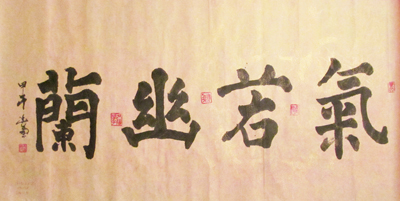 氣若幽蘭
甲午